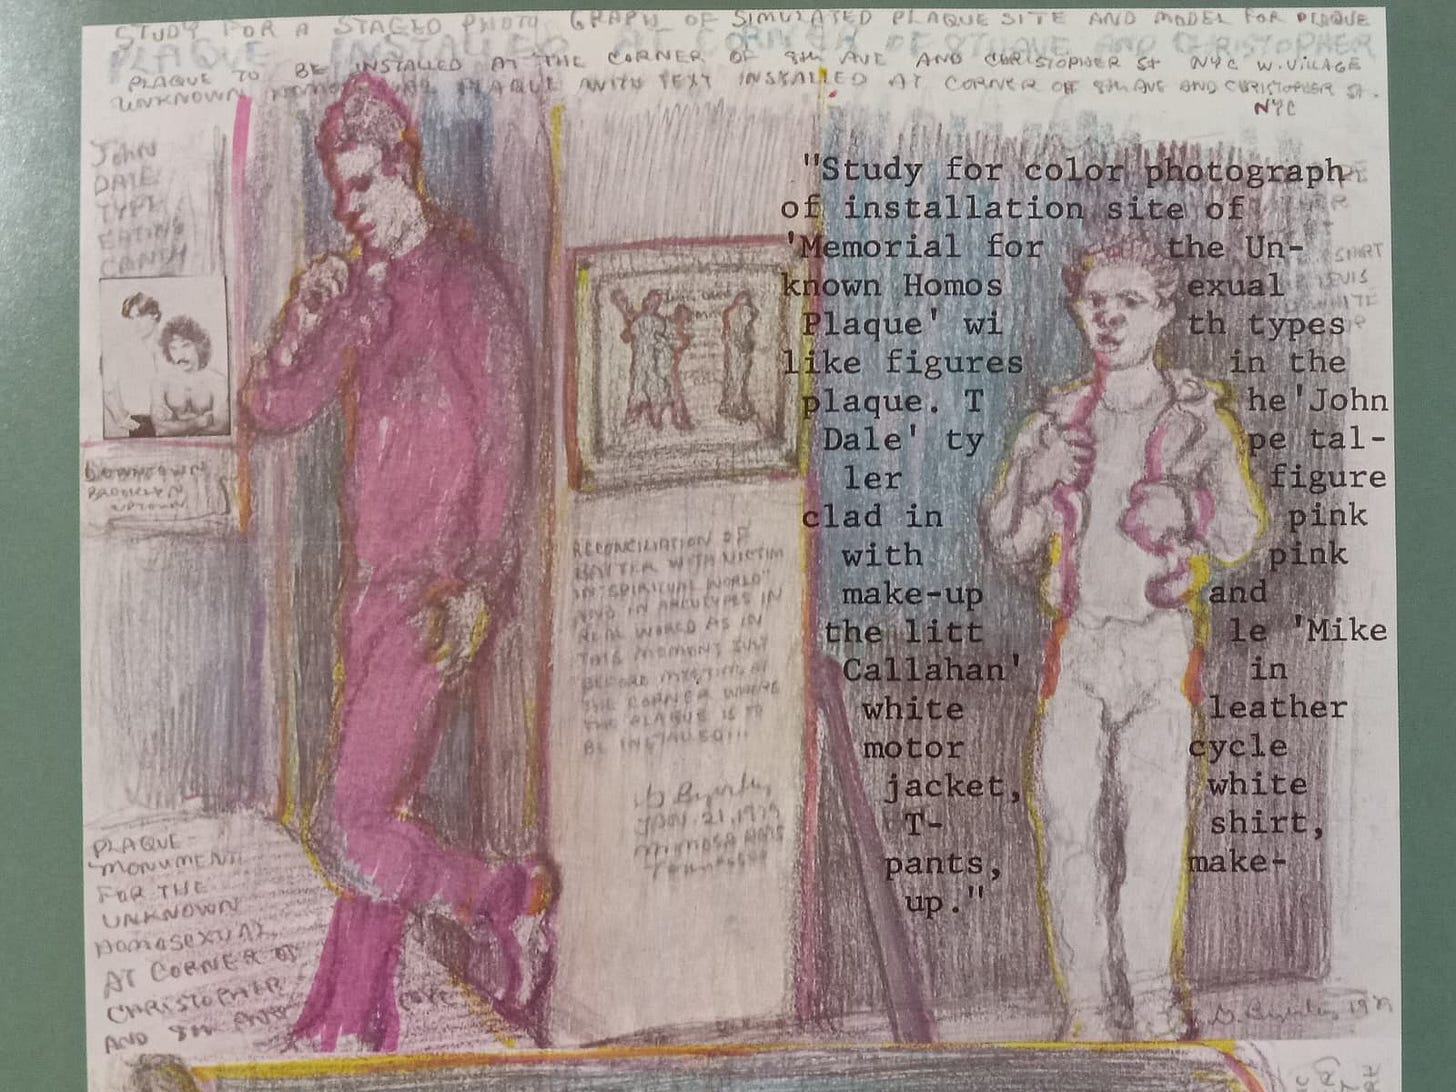 STUDY FOR A STAGED PHOTO GRAPH OF SIMULATED PLAQUE SITE AND MODEL FOR PLAQUE
PLAQUE INSTALLED AT CORNER OF 8TH AVE AND CHRISTOPHER
PLAQUE TO BE INSTALLED AT THE CORNER OF 8TH AVE AND CHRISTOPHER ST NYC W. VILLAGE
UNKNOWN PLAQUE WITH TEXT INSTALLED AT CORNER OF 8TH AVE AND CHRISTOPHER ST.
NYC
John
DALE
TYPE
EATING
CANDY
DOWNTOWN
BROOKLYN
UPTOWN
PLAQUE-
MONUMENT
FOR THE
UNKNOWN
HOMOSEXUAL
AT CORNER OF
CHRISTOPHER
AND 8TH AVE
RECONCILIATION OF
BATTER WITH VICTIM
IN "SPIRITUAL WORLD"
AND IN ARCHTYPES IN
REAL WORLD AS IN
THIS MOMENT JUST
BEFORE MEETING AT
THE CORNER WHERE
THE PLAQUE IS TO
BE INSTALLED!!!
JAN. 21, 1979
Tennessee
"Study for color photograph
of installation site of
'Memorial for the Un-
known Homos exual
Plaque' wi th types
like figures in the
plaque. T he 'John
Dale' ty pe tal-
ler figure
clad in pink
with pink
make-up and
the litt le 'Mike
Callahan' in
white leather
motor cycle
jacket, white
T- shirt,
pants, make-
up."
SHIRT
LEVIS
WHITE
1979